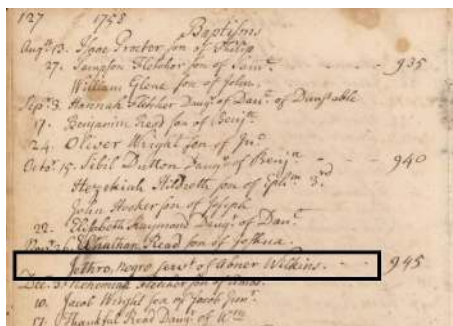 127 1758
Baptisms
Augt 13. Isaac Proctor son of Philip
27. Sampson Fletcher son of Saml. - 935
William Glene son of John.
Sept 3. Hannah Fletcher Daugr of Danl. of Dunstable
17. Benjamin Read son of Benjn.
24. Oliver Wright son of Jno.
Octor. 15. Sibil Dutton Daugr of Benjn - - - 940
Hezekiah Hildreth son of Ephm 3rd
John Hosker son of Joseph
22. Elisabeth Raymond Daugr of Danl.
Novr 26. Elnathan Read son of Joshua.
Jethro, negro servt of Abner Wilkins. - - 945
Dec. 3. Nehemiah Fletcher son of Amos.
10. Jacob Wright son of Jacob Junr.
17. Thankful Read Daugr of Wm